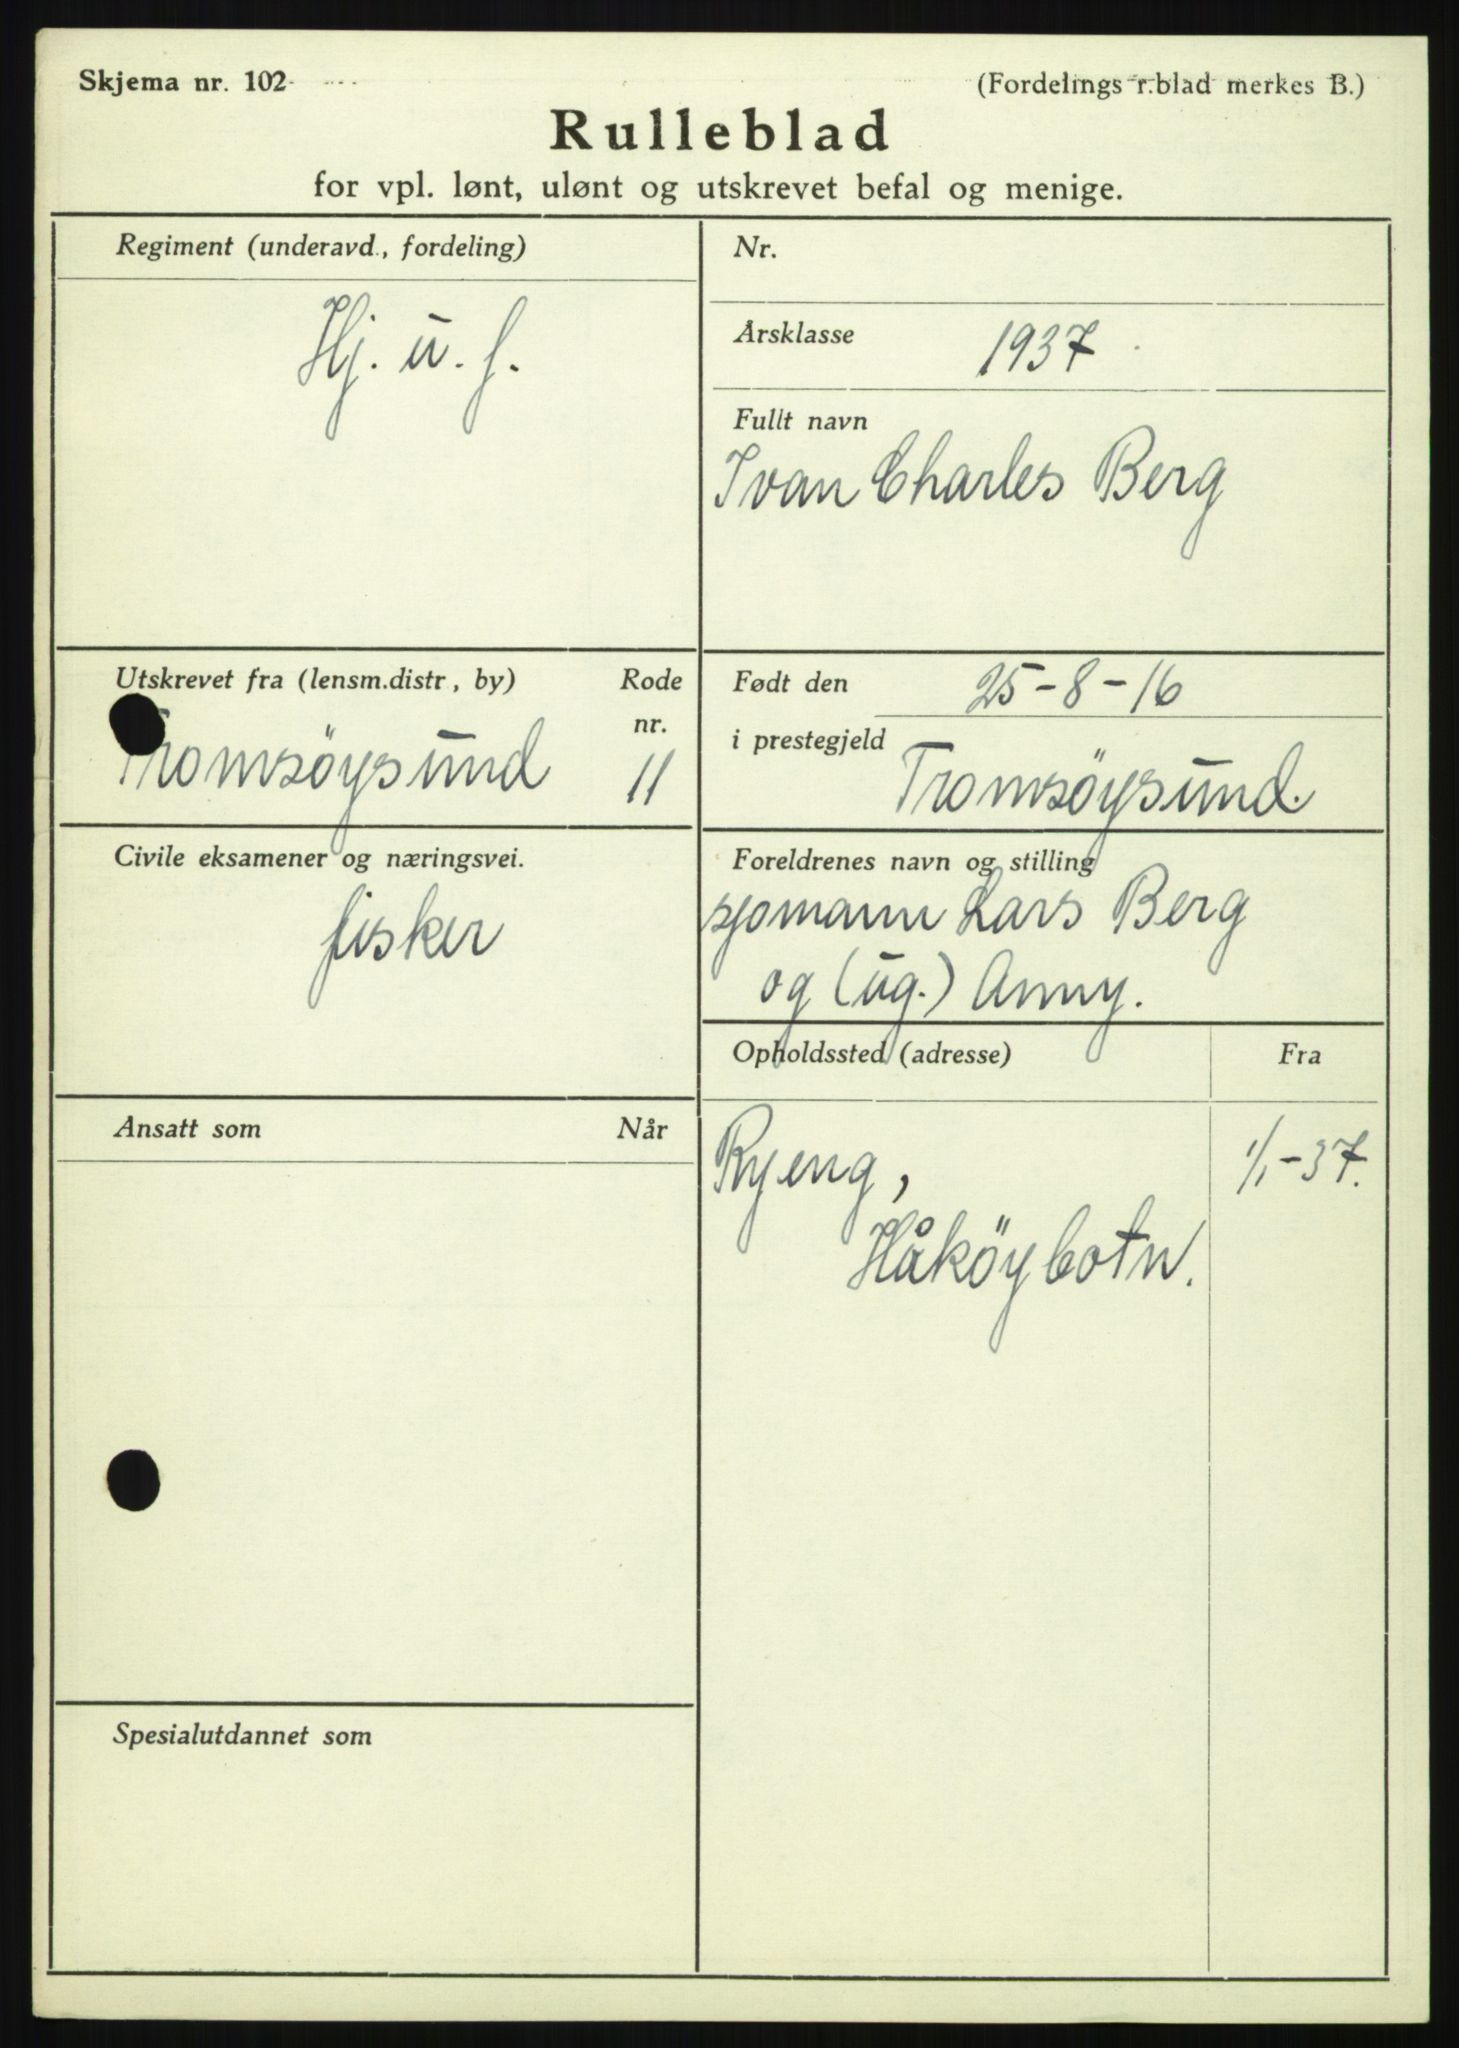 Skjema nr. 102
(Fordelings r.blad merkes B.)
Rulleblad
for vpl. lønt, ulønt og utskrevet befal og menige.
Regiment (underavd., fordeling)
Hj. u. f.
Nr.
Årsklasse 1937
Fullt navn
Ivan Charles Berg
Utskrevet fra (lensm.distr., by)
Rode
nr.
Tromsöysund 11
Født den 25-8-16
i prestegjeld
Tromsöysund.
Civile eksamener og næringsvei.
fisker
Foreldrenes navn og stilling
sjomann Lars Berg
og (ug.) Anny.
Opholdssted (adresse) Fra
Ryeng, 1/1-37.
Håköybotn.
Ansatt som Når
Spesialutdannet som